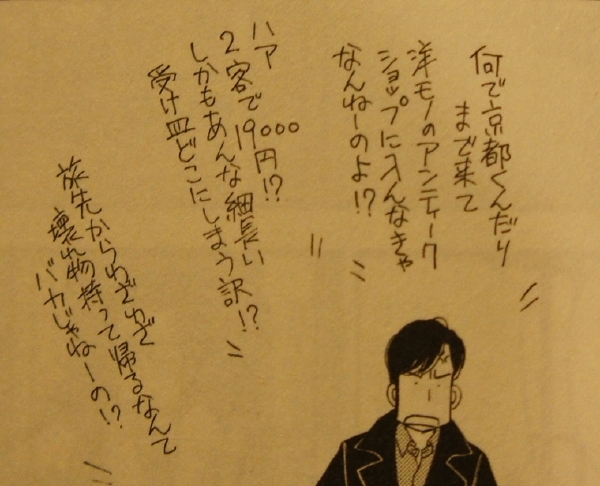 何で京都くんだり
まで来て
洋モノのアンティーク
ショップに入んなきゃ
なんねーのよ!?
ハア
2客で19000円!?
しかもあんな細長い
受け皿どこにしまう訳!?
旅先からわざわざ
壊れ物持って帰るなんて
バカじゃねーの!?